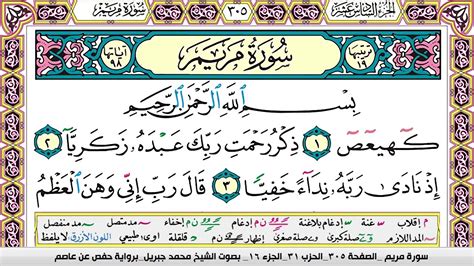 الجزء السادس عشر ٣٠٥ سورة مريم
ترتيبها ١٩ سورة مريم آياتها ٩٨
بِسْمِ اللَّهِ الرَّحْمَٰنِ الرَّحِيمِ
كٓهيعٓصٓ ١ ذِكْرُ رَحْمَتِ رَبِّكَ عَبْدَهُۥ زَكَرِيَّآ ٢
إِذْ نَادَىٰ رَبَّهُۥ نِدَآءً خَفِيًّا ٣ قَالَ رَبِّ إِنِّى وَهَنَ الْعَظْمُ
م إقلاب غنة إدغام بلاغنة إدغام إخفاء مد متصل مد منفصل
المد اللازم صلة كبرى صلة صغرى قلقلة اوى: طبيعي اللون الأزرق: لا يلفظ
سورة مريم_الصفحة ٣٠٥ الحزب ٣١ الجزء ١٦_ بصوت الشيخ محمد جبريل_برواية حفص عن عاصم